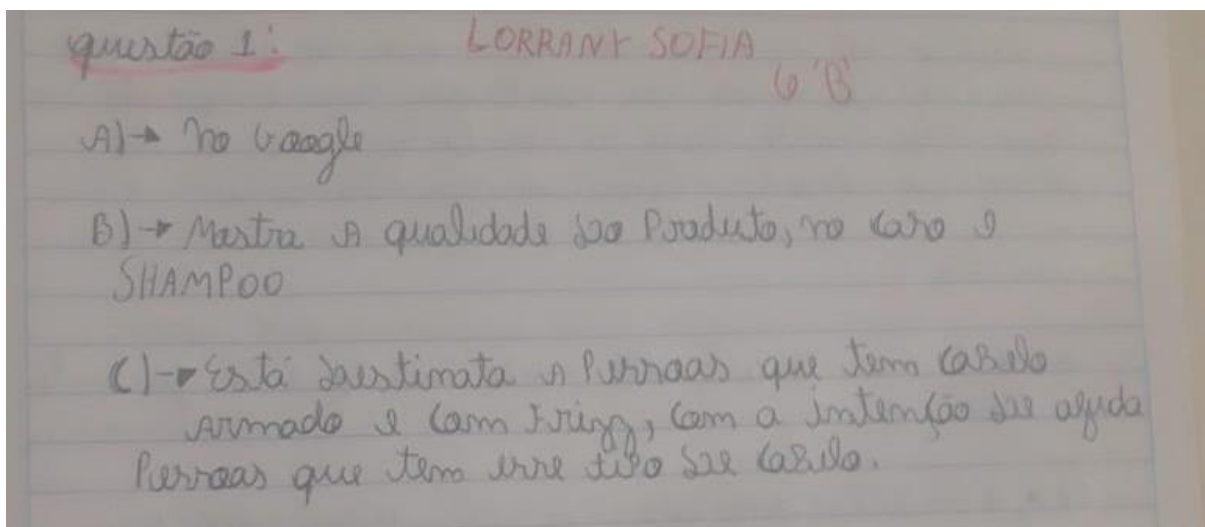 questão 1: LORRANY SOFIA
6 'B'
A)→ no Google
B)→ Mostra A qualidade do Produto, no caso o
SHAMPOO
C)→ Está destinata A Pessoas que tem cabelo
Armado e com Frizz, com a intenção de ajuda
Pessoas que tem esse tipo de cabelo.